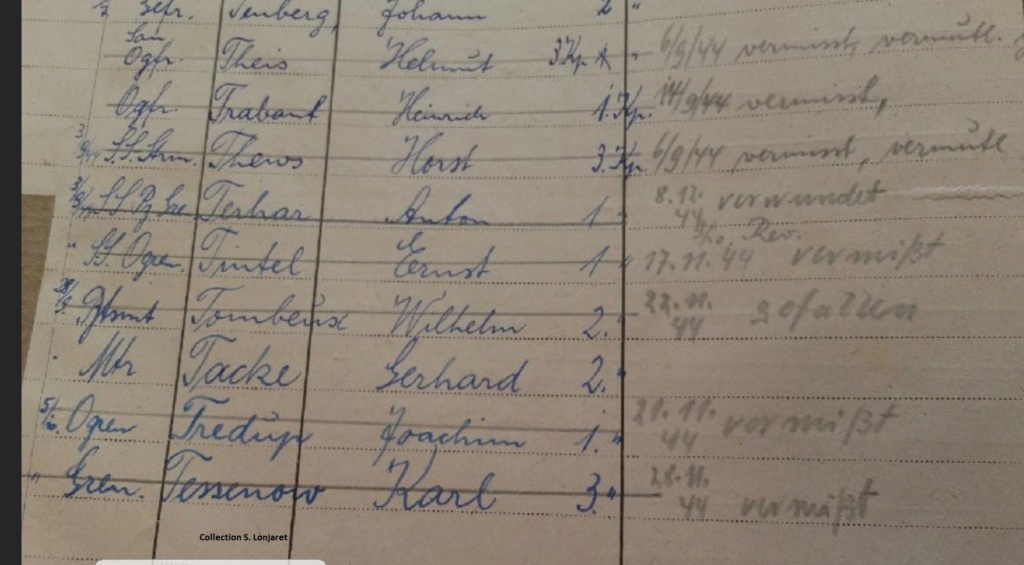 Gefr. Tenberg, Johann 2 "
San
Ogfr. Theis Helmut 3.Kp. " 6/9/44 vermisst, vermutl.
Ogfr. Trabant Heinrich 1.Kp. 14/9/44 vermisst,
S.S. Strm. Thews Horst 3.Kp. 6/9/44 vermisst, vermutl
SS Pz Gre Terhar Anton 1 " 8.12. 44 verwundet
Rev.
St. Ogren. Tintel Ernst 1 " 17.11.44 vermißt
Tombeux Wilhelm 2. " 22.11. 44 gefallen
Mtr Tacke Gerhard 2. "
5/10. Ogren Tredup Joachim 1. " 21.11. 44 vermißt
" Gren. Tessenow Karl 3. " 28.11. 44 vermißt
Collection S. Lonjaret